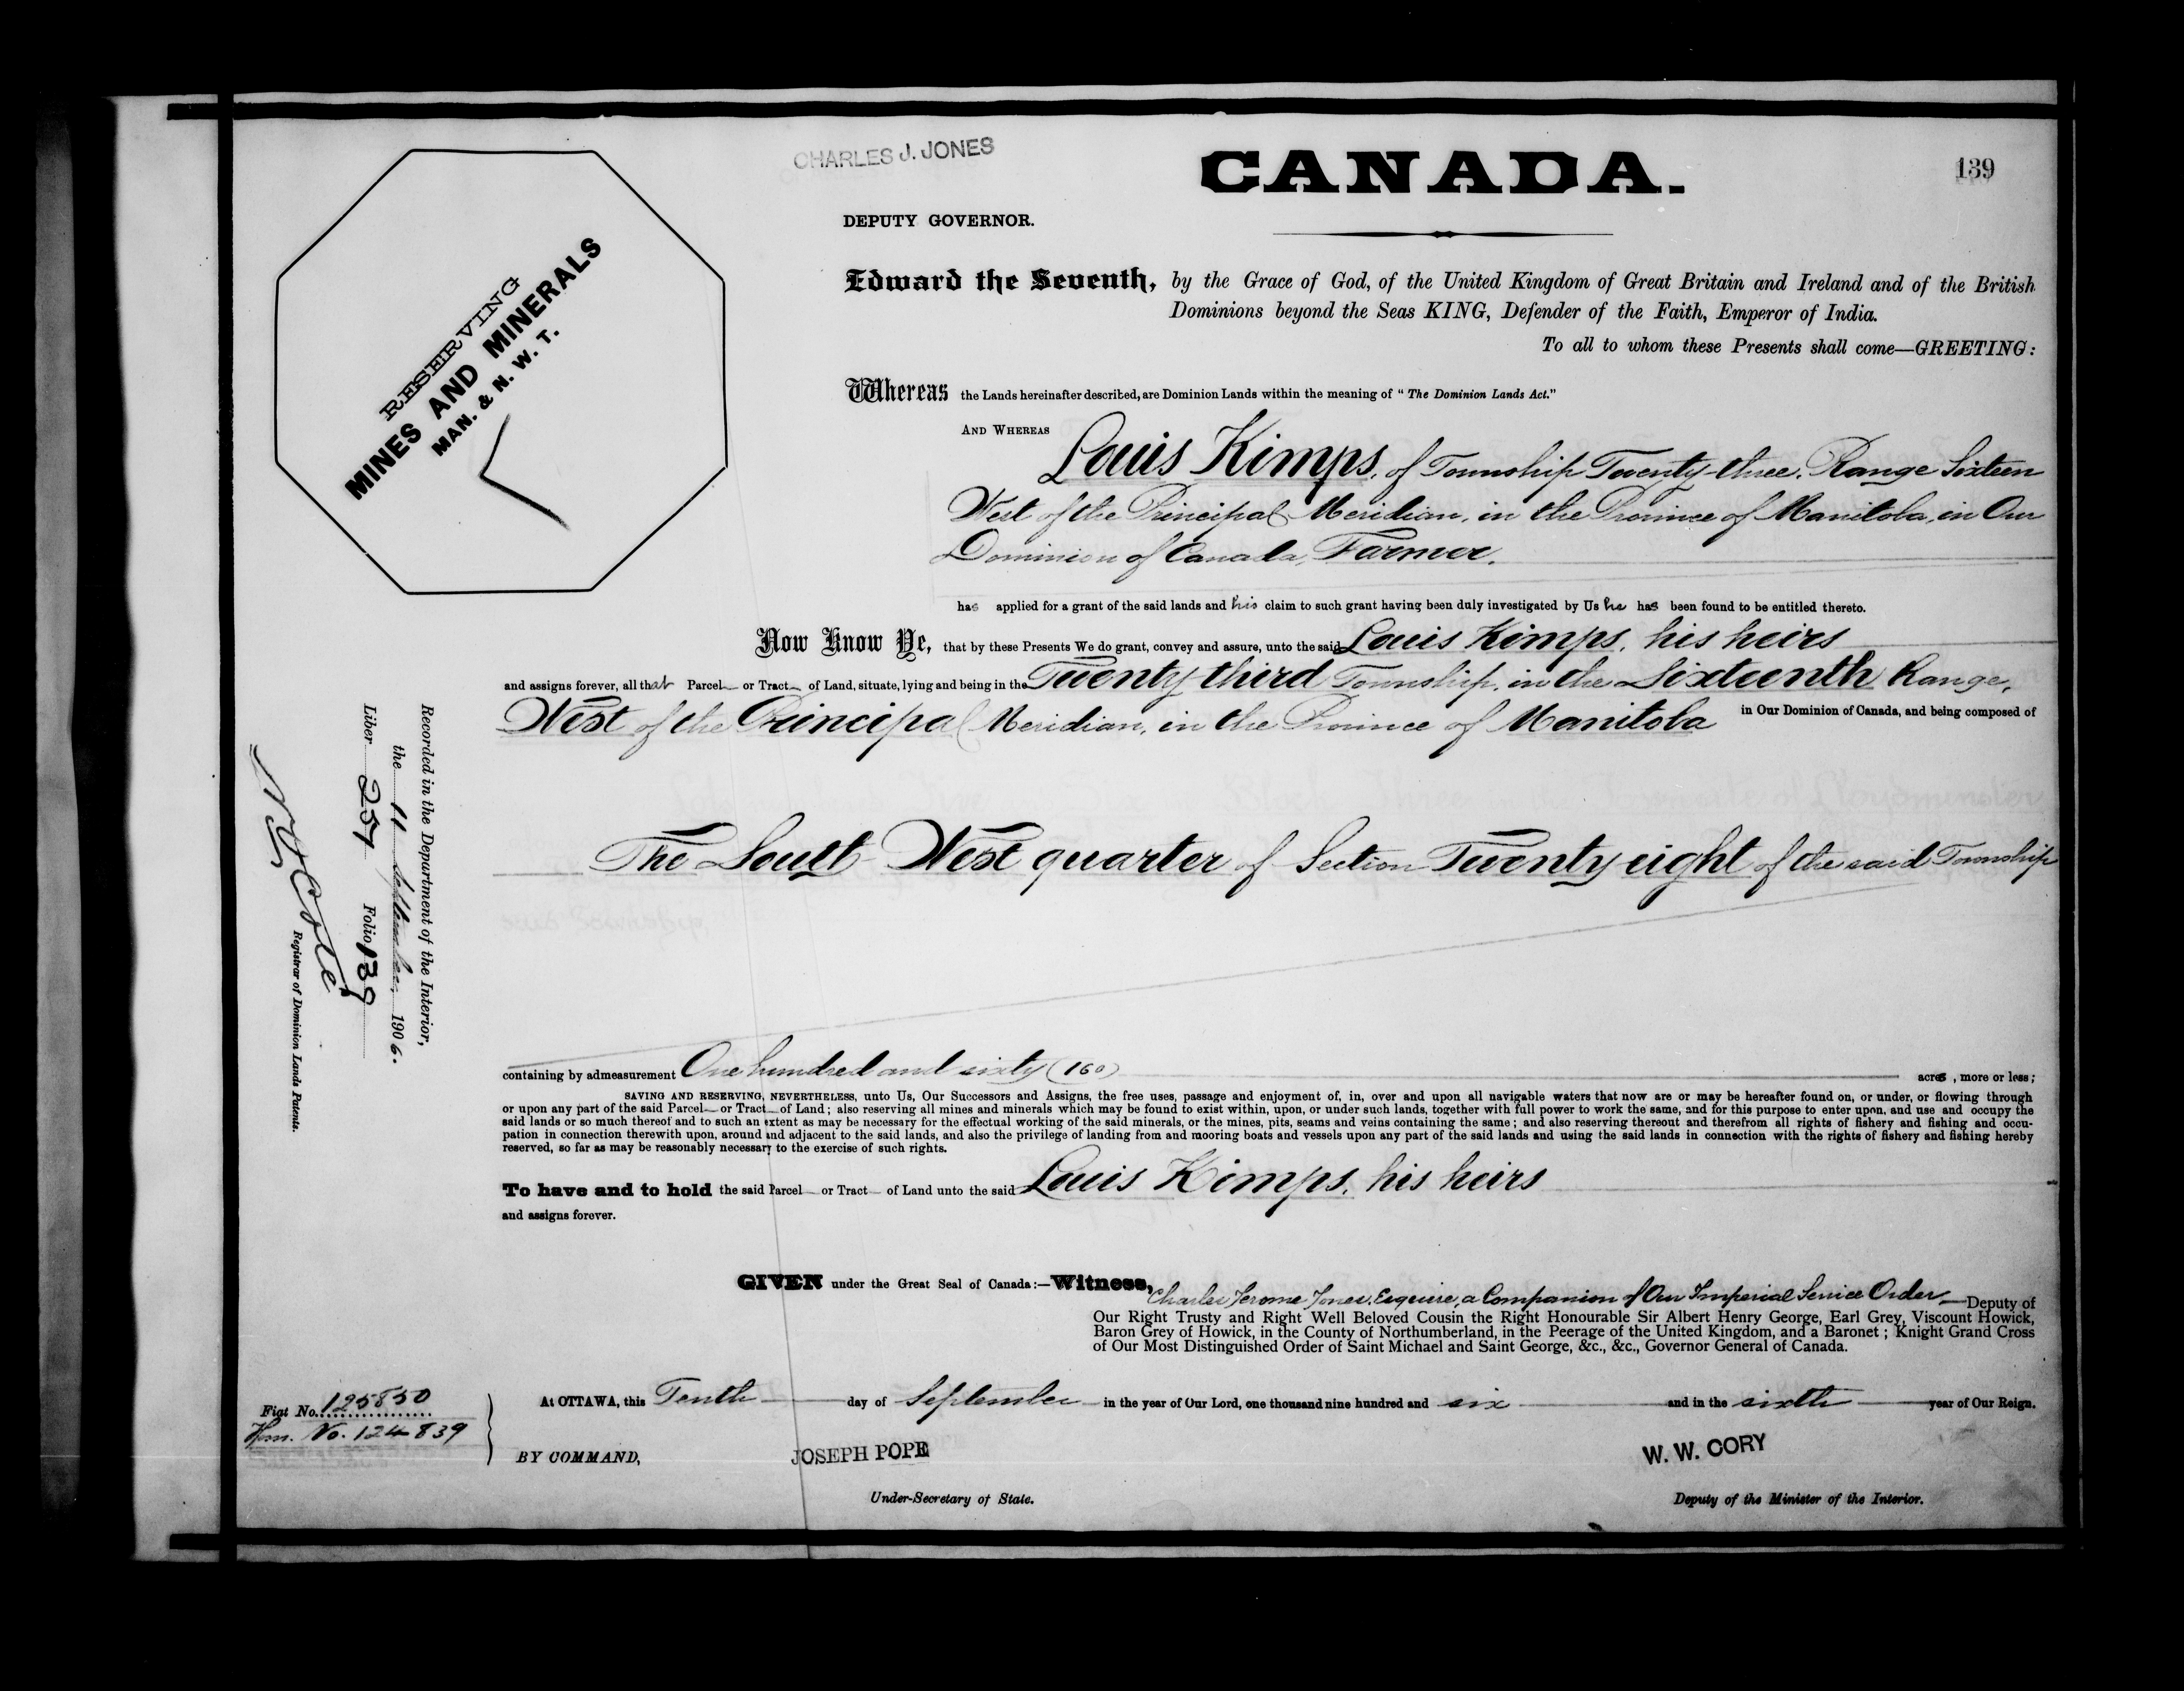 CHARLES J. JONES
CANADA.
139
DEPUTY GOVERNOR.
RESERVING
MINES AND MINERALS
MAN. & N. W. T.
Edward the Seventh, by the Grace of God, of the United Kingdom of Great Britain and Ireland and of the British
Dominions beyond the Seas KING, Defender of the Faith, Emperor of India.
To all to whom these Presents shall come—GREETING:
Whereas the Lands hereinafter described, are Dominion Lands within the meaning of "The Dominion Lands Act."
AND WHEREAS
Louis Kimps, of Township Twenty-three, Range Sixteen
West of the Principal Meridian, in the Province of Manitoba, in Our
Dominion of Canada, Farmer.
has applied for a grant of the said lands and his claim to such grant having been duly investigated by Us he has been found to be entitled thereto.
Now Know Ye, that by these Presents We do grant, convey and assure, unto the said Louis Kimps, his heirs
and assigns forever, all that Parcel or Tract of Land, situate, lying and being in the Twenty third Township, in the Sixteenth Range,
West of the Principal Meridian, in the Province of Manitoba in Our Dominion of Canada, and being composed of
The South West quarter of Section Twenty eight of the said Township
containing by admeasurement One hundred and sixty (160) acres, more or less;
SAVING AND RESERVING, NEVERTHELESS, unto Us, Our Successors and Assigns, the free uses, passage and enjoyment of, in, over and upon all navigable waters that now are or may be hereafter found on, or under, or flowing through
or upon any part of the said Parcel or Tract of Land; also reserving all mines and minerals which may be found to exist within, upon, or under such lands, together with full power to work the same, and for this purpose to enter upon, and use and occupy the
said lands or so much thereof and to such an extent as may be necessary for the effectual working of the said minerals, or the mines, pits, seams and veins containing the same; and also reserving thereout and therefrom all rights of fishery and fishing and occu-
pation in connection therewith upon, around and adjacent to the said lands, and also the privilege of landing from and mooring boats and vessels upon any part of the said lands and using the said lands in connection with the rights of fishery and fishing hereby
reserved, so far as may be reasonably necessary to the exercise of such rights.
To have and to hold the said Parcel or Tract of Land unto the said Louis Kimps, his heirs
and assigns forever.
GIVEN under the Great Seal of Canada:—Witness,
Charles Jerome Jones, Esquire, a Companion of Our Imperial Service Order—Deputy of
Our Right Trusty and Right Well Beloved Cousin the Right Honourable Sir Albert Henry George, Earl Grey, Viscount Howick,
Baron Grey of Howick, in the County of Northumberland, in the Peerage of the United Kingdom, and a Baronet; Knight Grand Cross
of Our Most Distinguished Order of Saint Michael and Saint George, &c., &c., Governor General of Canada.
At OTTAWA, this Tenth day of September in the year of Our Lord, one thousand nine hundred and six and in the sixth year of Our Reign.
Fiat No. 125850
Hom. No. 124839
BY COMMAND,
JOSEPH POPE
Under-Secretary of State.
W. W. CORY
Deputy of the Minister of the Interior.
Recorded in the Department of the Interior,
the 11 September 1906.
Liber 257 Folio 139
N. O. Coté
Registrar of Dominion Lands Patents.